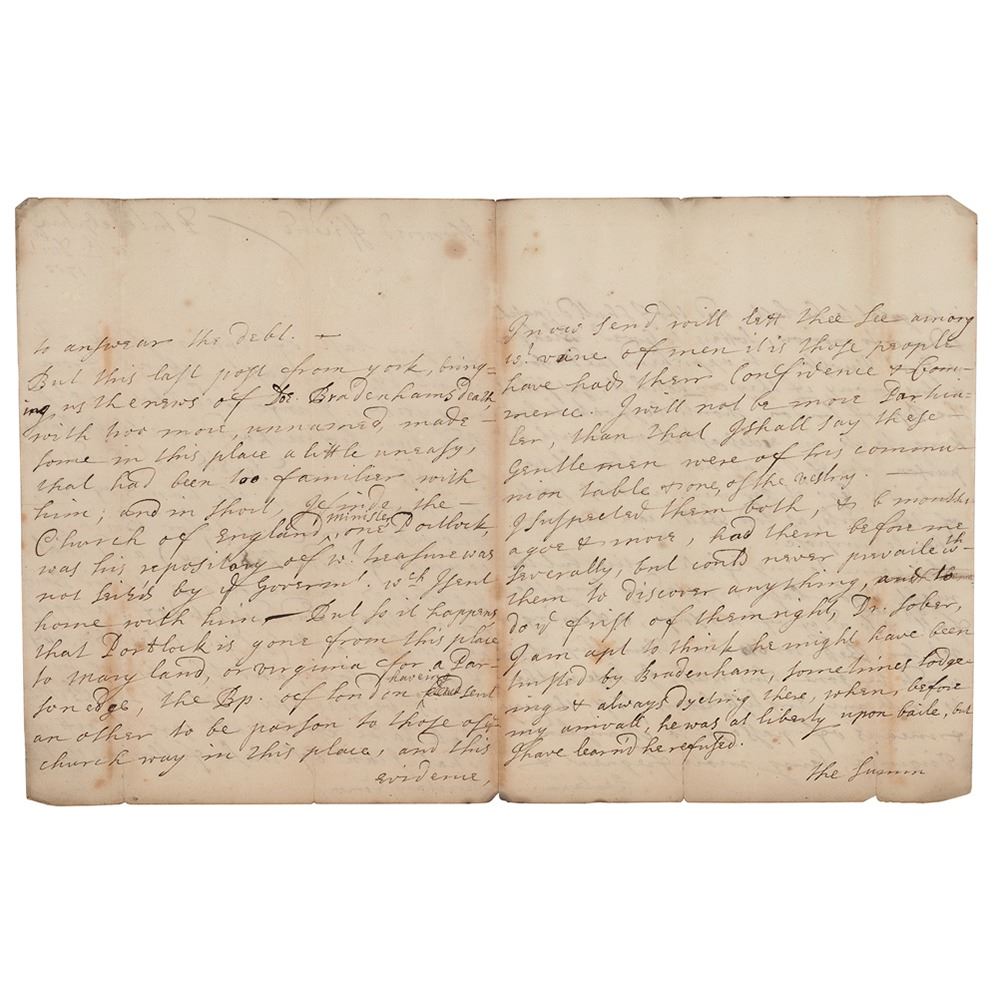 to answear the debt. —
But this last post from york, bring=
ing, us the news of Doc. Bradenhams Death,
with two more, unnamed, made –
some in this place a little uneasy,
that had been too familier with
him; and in short, the –
Church of England minister, one Portlock,
was his repository of wt. treasure was
not Seiz'd by ye Governmt. wch I sent
home with him — But so it happens
that Portlock is gone from this place
to Maryland, or virginia for a Par-
son edge, the Bp. of London having sent
an other to be parson to those of ye
church way in this place, and this
evidence,
I now send will lett thee see among
wt. vaine of men it is those people
have had their Confidence & Com-
merce. I will not be more Parkiu-
ler, than that I shall say these –
Gentlemen were of his commu-
nion table & one, of the vestry. —
I suspected them both & 6 months
agoe & more, had them before me
severally, but could never prevaile wth
them to discover anything, and to
do ye frist of them right, Dr. Sober,
I am apt to think he might have been
trusted by Bradenham, sometimes lodge-
ing & always dyeting there, when, before
my arrivall, he was at liberty upon baile, but
I have learnd he refused.
the Summ